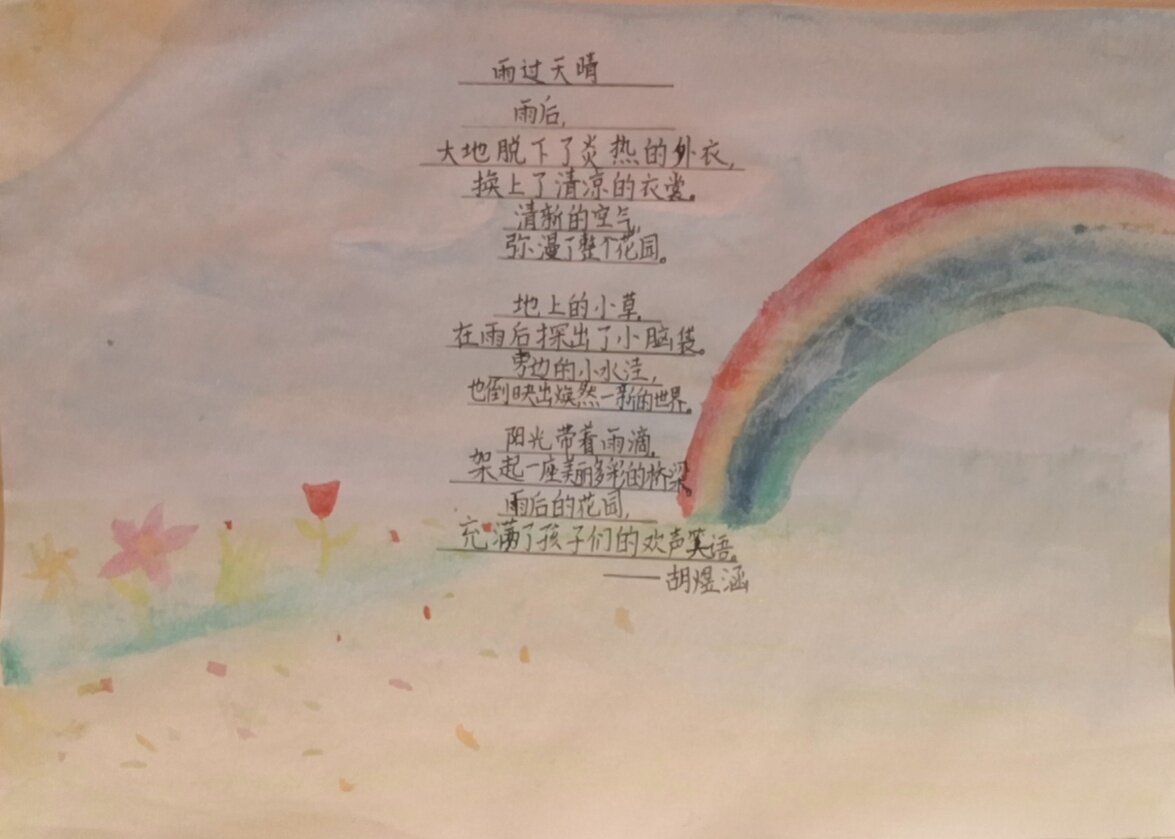 雨过天晴
雨后,
大地脱下了炎热的外衣,
换上了清凉的衣裳。
清新的空气,
弥漫了整个花园。
地上的小草,
在雨后探出了小脑袋。
旁边的小水洼,
也倒映出焕然一新的世界。
阳光带着雨滴,
架起一座美丽多彩的桥梁。
雨后的花园,
充满了孩子们的欢声笑语。
——胡煜涵